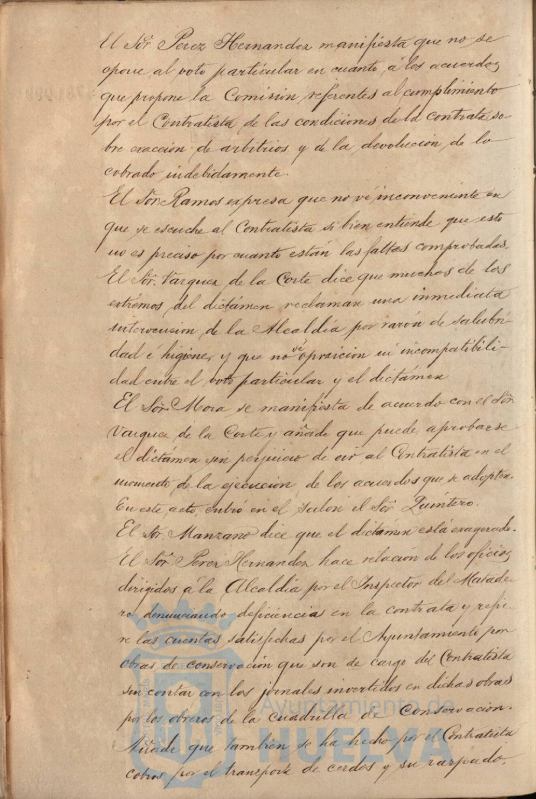 El Sōr Perez Hernandez manifiesta que no se
opone al voto particular en cuanto á los acuerdos
que propone la Comision referentes al cumplimiento
por el Contratista de las condiciones de la contrata so-
bre exaccion de arbitrios y de la devolucion de lo
cobrado indebidamente.
El Sōr Ramos expresa que no vé inconveniente en
que se escuche al Contratista si bien entiende que esto
no es preciso por cuanto están las faltas comprobadas.
El Sōr Vazquez de la Corte dice que muchos de los
extremos del dictámen reclaman una inmediata
intervencion de la Alcaldía por razón de salubri-
dad é higiene, y que no ve oposicion ni incompatibili-
dad entre el voto particular y el dictámen
El Sōr Mora se manifiesta de acuerdo con el Sōr
Vazquez de la Corte y añade que puede aprobarse
el dictámen sin perjuicio de oir al Contratista en el
momento de la ejecucion de los acuerdos que se adopten.
En este acto entró en el Salon el Sōr Quintero.
El Sōr Manzano dice que el dictamen está exagerado.
El Sōr Perez Hernandez hace relación de los oficios
dirigidos á la Alcaldía por el Inspector del Matade-
ro denunciando deficiencias en la contrata y refie-
re las cuentas satisfechas por el Ayuntamiento por
obras de conservación que son de cargo del Contratista
sin contar con los jornales invertidos en dichas obras
por los obreros de la cuadrilla de Conservacion.
Añade que tambien se ha hecho por el Contratista
cobros por el transporte de cerdos y su raspado,
Ayuntamiento de
HUELVA